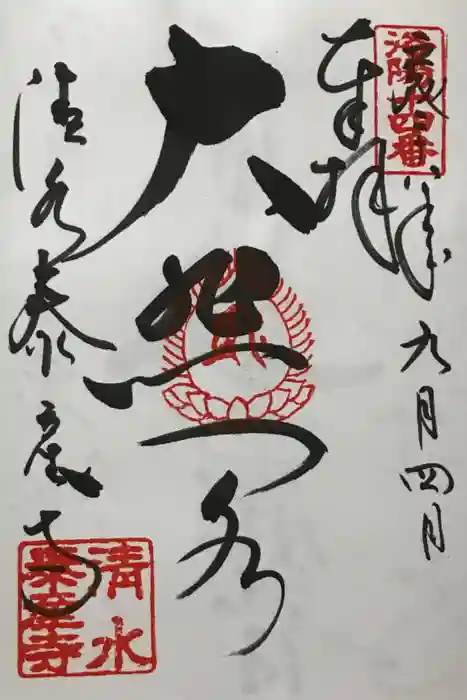 洛陽十四番
奉拝
年九月四日
大悲閣
清水泰産寺
清水
泰産寺